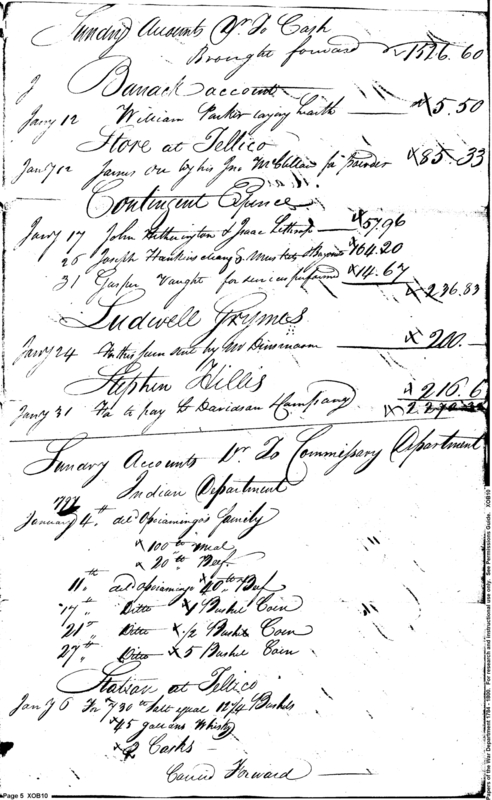 Sundry Accounts Dr To Cash
Brought forward 1526.60
Barrack account
Jany 12 William Parker laying hearth 5.50
Store at Tellico
Jany 12 James Orr by his Jno McClellan for powder 85.33
Contingent Expence
Jany 17 John Hetherington & Isaac Lothrop 57.96
26 Joseph Hankins cleang Muskets & Bayonets 164.20
31 Gasper Vaught for services performed 14.67
236.83
Ludwell Grymes
Jany 24 For this sum sent by Mr Dinsmoor 200.
Stephen Hillis
216.6
Jany 31 For to pay Lt Davidson & Company
Sundry Accounts Dr. To Commissary Department
Indian Department
1797
January 4th del Opiamingo's family
100 lb Meal
20 lb Beef
11th del Opiamingo 40 lb Beef
17th Ditto 1 Bushel Corn
21st Ditto 1/2 Bushel Corn
27th Ditto 5 Bushel Corn
Station at Tellico
Jany 6 For 730 lb Salt equal 12 7/4 Bushels
45 gallons Whisky
2 Casks
Carried Forward
Page 5 XOB10
Papers of the War Department 1784 - 1800. For research and instructional use only. See Permissions Guide. XOB10